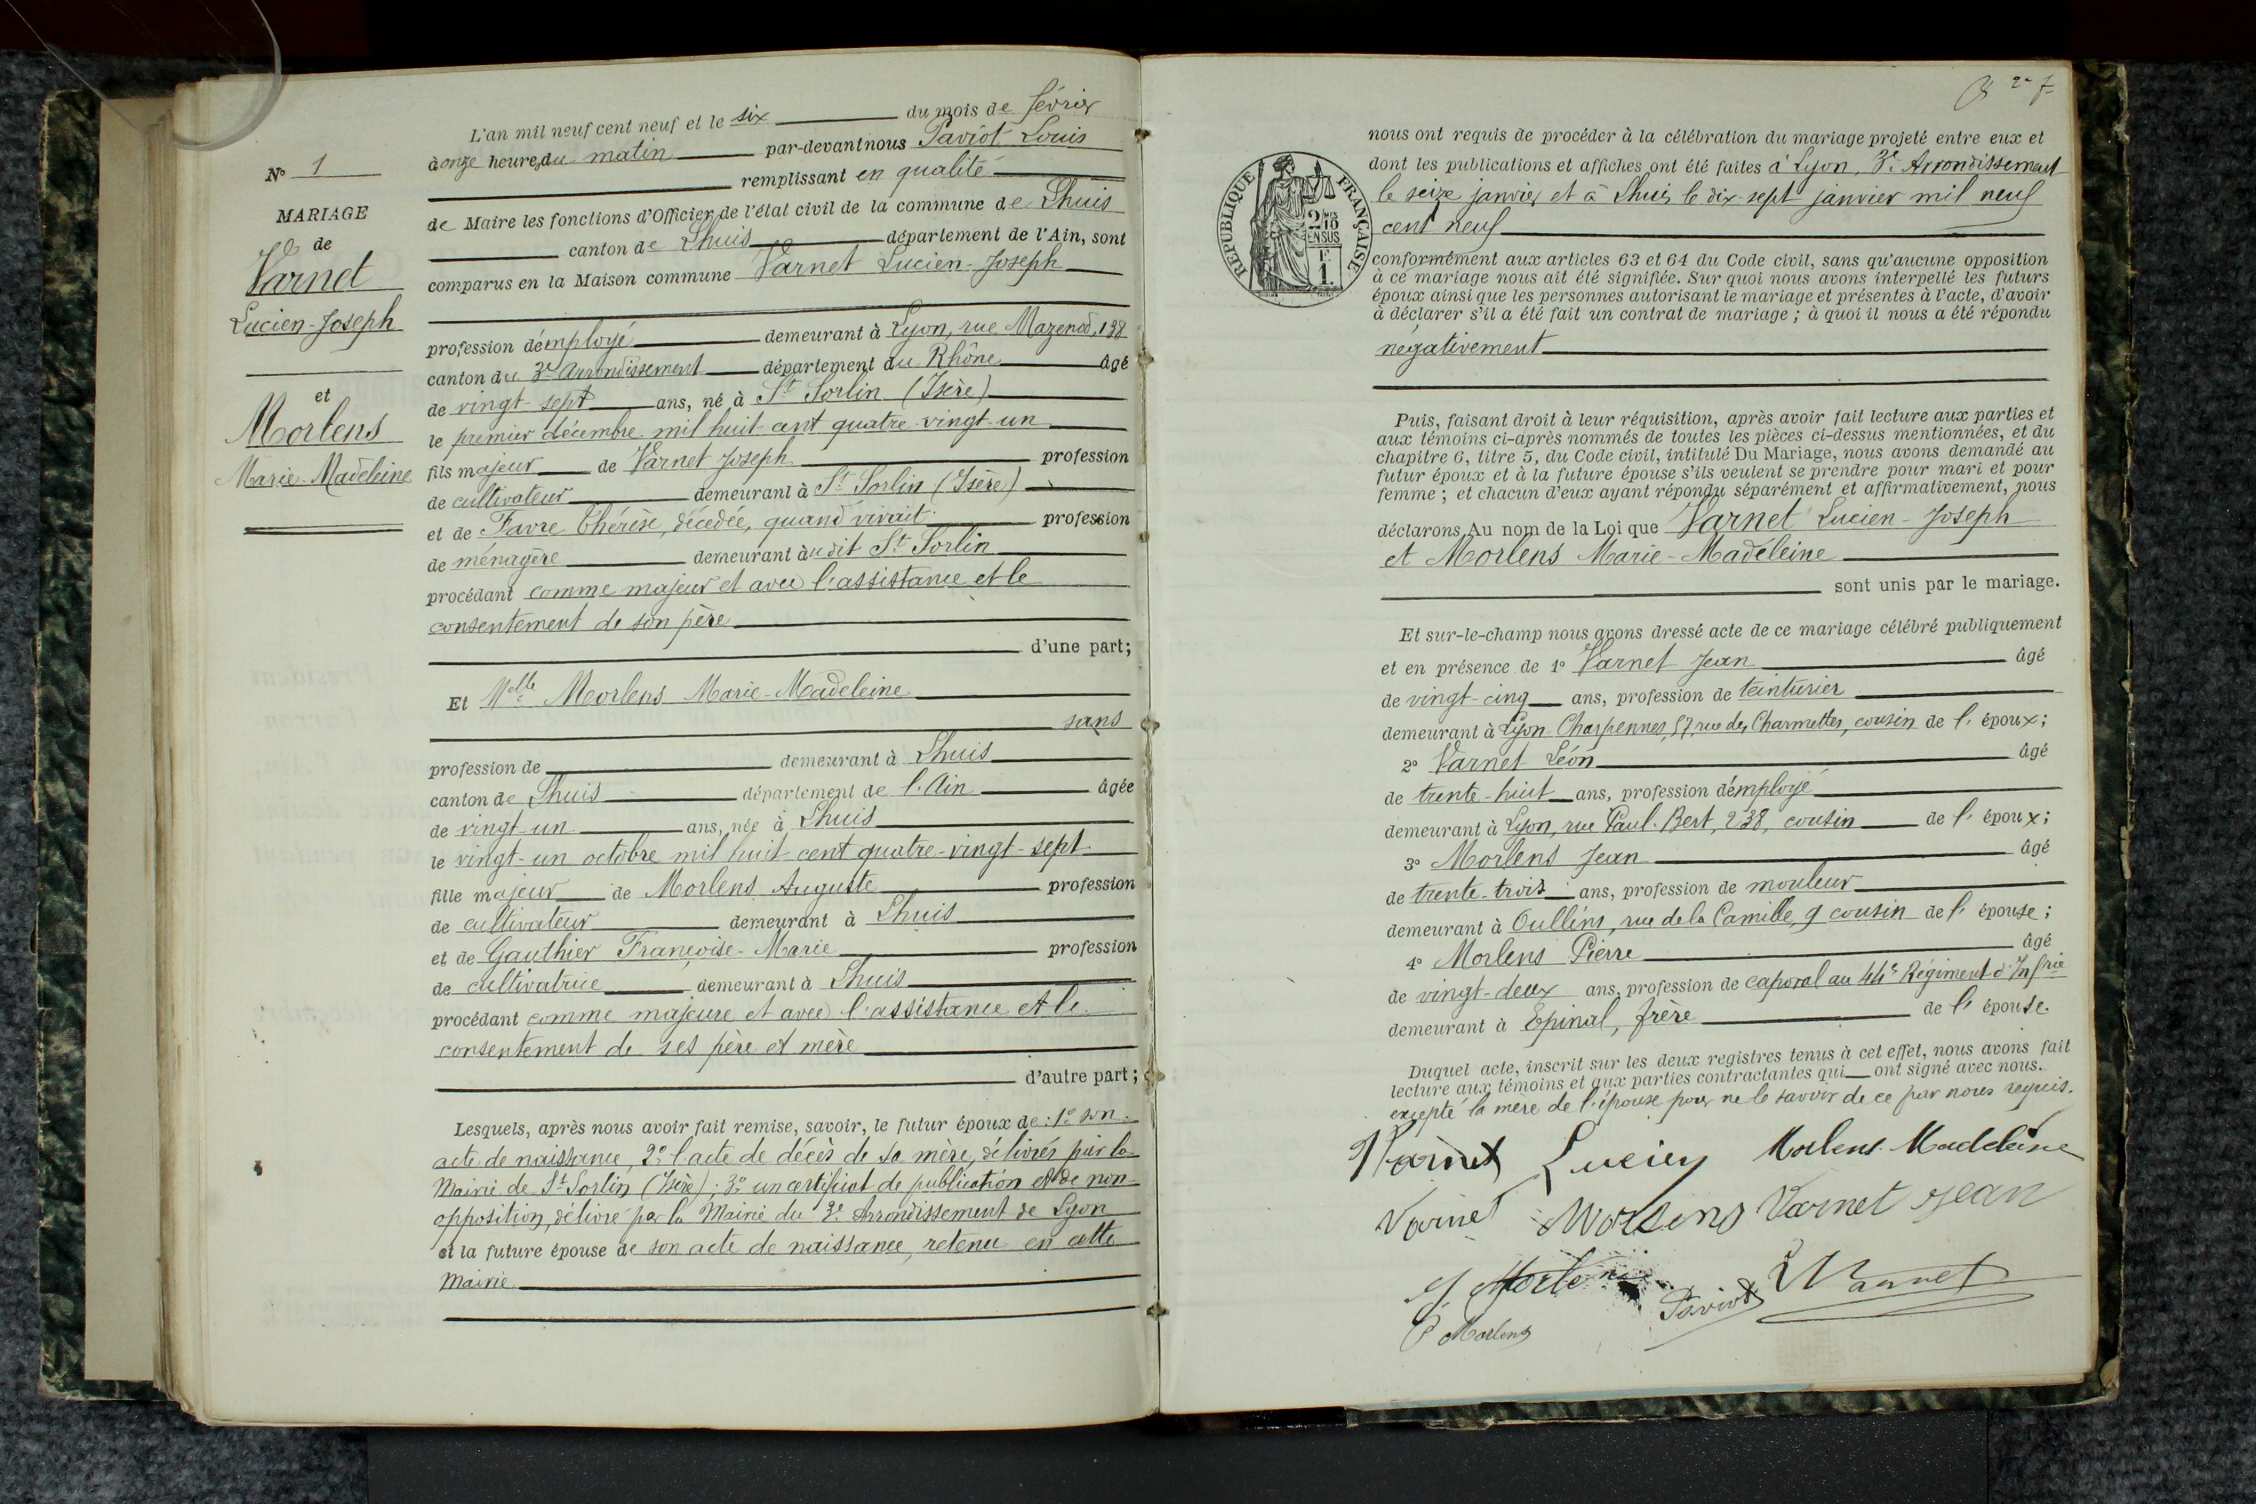 N° 1
MARIAGE
de
Varnet
Lucien-Joseph
et
Morlens
Marie-Madeleine
L'an mil neuf cent neuf et le six du mois de février
à onze heures du matin par-devant nous Paviot Louis
remplissant en qualité
de Maire les fonctions d'Officier de l'état civil de la commune de Lhuis
canton de Lhuis département de l'Ain, sont
comparus en la Maison commune Varnet Lucien-Joseph
profession d'employé demeurant à Lyon, rue Mazenod, 138
canton du 3e Arrondissement département du Rhône âgé
de vingt-sept ans, né à St Sorlin (Isère)
le premier décembre mil huit cent quatre-vingt-un
fils majeur de Varnet Joseph profession
de cultivateur demeurant à St Sorlin (Isère)
et de Favre Thérèse, décedée, quand vivait profession
de ménagère demeurant audit St Sorlin
procédant comme majeur et avec l'assistance et le
consentement de son père
d'une part;
Et Melle Morlens Marie-Madeleine
sans
profession de demeurant à Lhuis
canton de Lhuis département de l'Ain âgée
de vingt-un ans, née à Lhuis
le vingt-un octobre mil huit-cent quatre-vingt-sept
fille majeur de Morlens Auguste profession
de cultivateur demeurant à Lhuis
et de Gauthier Françoise-Marie profession
de cultivatrice demeurant à Lhuis
procédant comme majeure et avec l'assistance et le
consentement de ses père et mère
d'autre part;
Lesquels, après nous avoir fait remise, savoir, le futur époux de: 1° son
acte de naissance, 2° l'acte de décès de sa mère, délivrés par la
Mairie de St Sorlin (Isère); 3° un certificat de publication et de non
opposition, délivré par la Mairie du 3e Arrondissement de Lyon
et la future épouse de son acte de naissance, retenu en cette
Mairie
2e f.
nous ont requis de procéder à la célébration du mariage projeté entre eux et
dont les publications et affiches ont été faites à Lyon, 3e Arrondissement
le seize janvier et à Lhuis le dix-sept janvier mil neuf
cent neuf
RÉPUBLIQUE FRANÇAISE
2/10 EN SUS
F 1.
conformément aux articles 63 et 64 du Code civil, sans qu'aucune opposition
à ce mariage nous ait été signifiée. Sur quoi nous avons interpellé les futurs
époux ainsi que les personnes autorisant le mariage et présentes à l'acte, d'avoir
à déclarer s'il a été fait un contrat de mariage; à quoi il nous a été répondu
négativement
Puis, faisant droit à leur réquisition, après avoir fait lecture aux parties et
aux témoins ci-après nommés de toutes les pièces ci-dessus mentionnées, et du
chapitre 6, titre 5, du Code civil, intitulé Du Mariage, nous avons demandé au
futur époux et à la future épouse s'ils veulent se prendre pour mari et pour
femme; et chacun d'eux ayant répondu séparément et affirmativement, nous
déclarons Au nom de la Loi que Varnet Lucien-Joseph
et Morlens Marie-Madeleine
sont unis par le mariage.
Et sur-le-champ nous avons dressé acte de ce mariage célébré publiquement
et en présence de 1° Varnet Jean âgé
de vingt-cinq ans, profession de teinturier
demeurant à Lyon-Charpennes, 57, rue des Charmettes, cousin de l'époux;
2° Varnet Léon âgé
de trente-huit ans, profession d'employé
demeurant à Lyon, rue Paul-Bert, 238, cousin de l'époux;
3° Morlens Jean âgé
de trente-trois ans, profession de mouleur
demeurant à Oullins, rue de la Camille, 9 cousin de l'épouse;
4° Morlens Pierre âgé
de vingt-deux ans, profession de caporal au 44e Régiment d'Infrie
demeurant à Epinal, frère de l'épouse.
Duquel acte, inscrit sur les deux registres tenus à cet effet, nous avons fait
lecture aux témoins et aux parties contractantes qui ont signé avec nous.
excepté la mère de l'épouse pour ne le savoir de ce par nous requis.
Varnet Lucien Morlens Madeleine
Varnet Morlens Varnet Jean
J. Morlens Paviot L Varnet
P Morlens